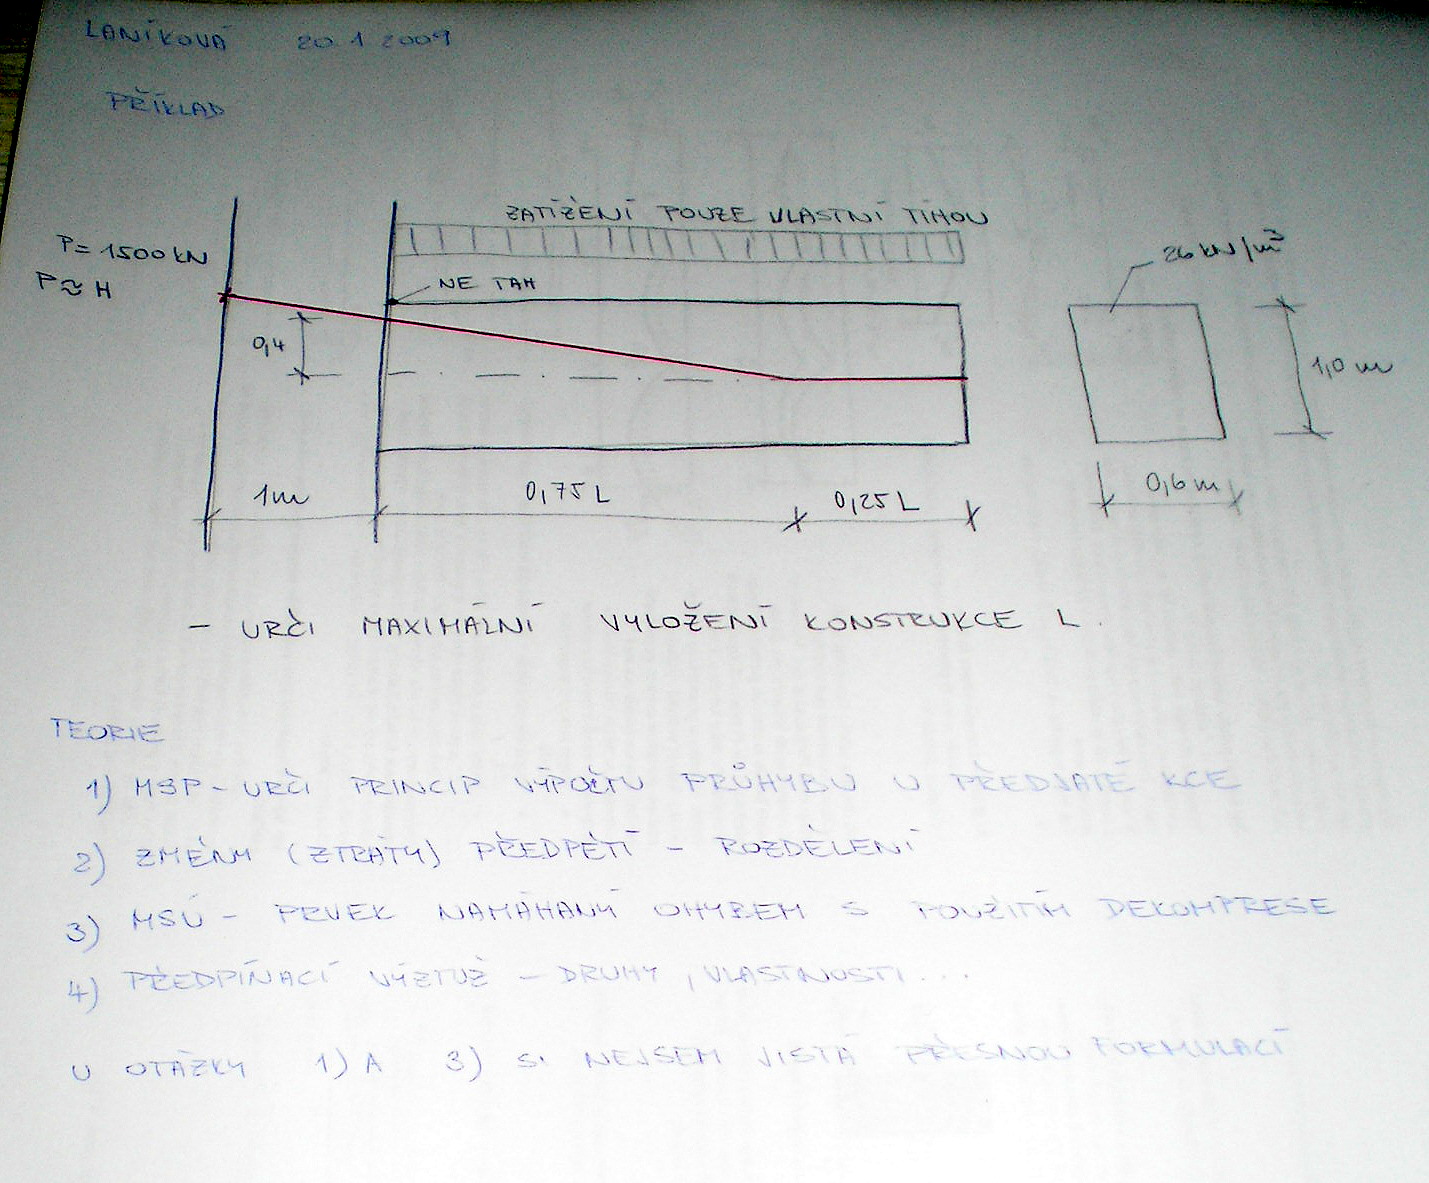 LANÍKOVÁ 20.1.2009
PŘÍKLAD
ZATÍŽENÍ POUZE VLASTNÍ TÍHOU
P = 1500 kN
P ≈ H
NE TAH
26 kN/m³
0,4
1,0 m
1m
0,75 L
0,25 L
0,6 m
- URČI MAXIMÁLNÍ VYLOŽENÍ KONSTRUKCE L.
TEORIE
1) MSP - URČI PRINCIP VÝPOČTU PRŮHYBU U PŘEDJATÉ KCE
2) ZMĚNY (ZTRÁTY) PŘEDPĚTÍ - ROZDĚLENÍ
3) MSÚ - PRVEK NAMÁHANÝ OHYBEM S POUŽITÍM DEKOMPRESE
4) PŘEDPÍNACÍ VÝZTUŽ - DRUHY, VLASTNOSTI...
U OTÁZKY 1) A 3) SI NEJSEM JISTÁ PŘESNOU FORMULACÍ